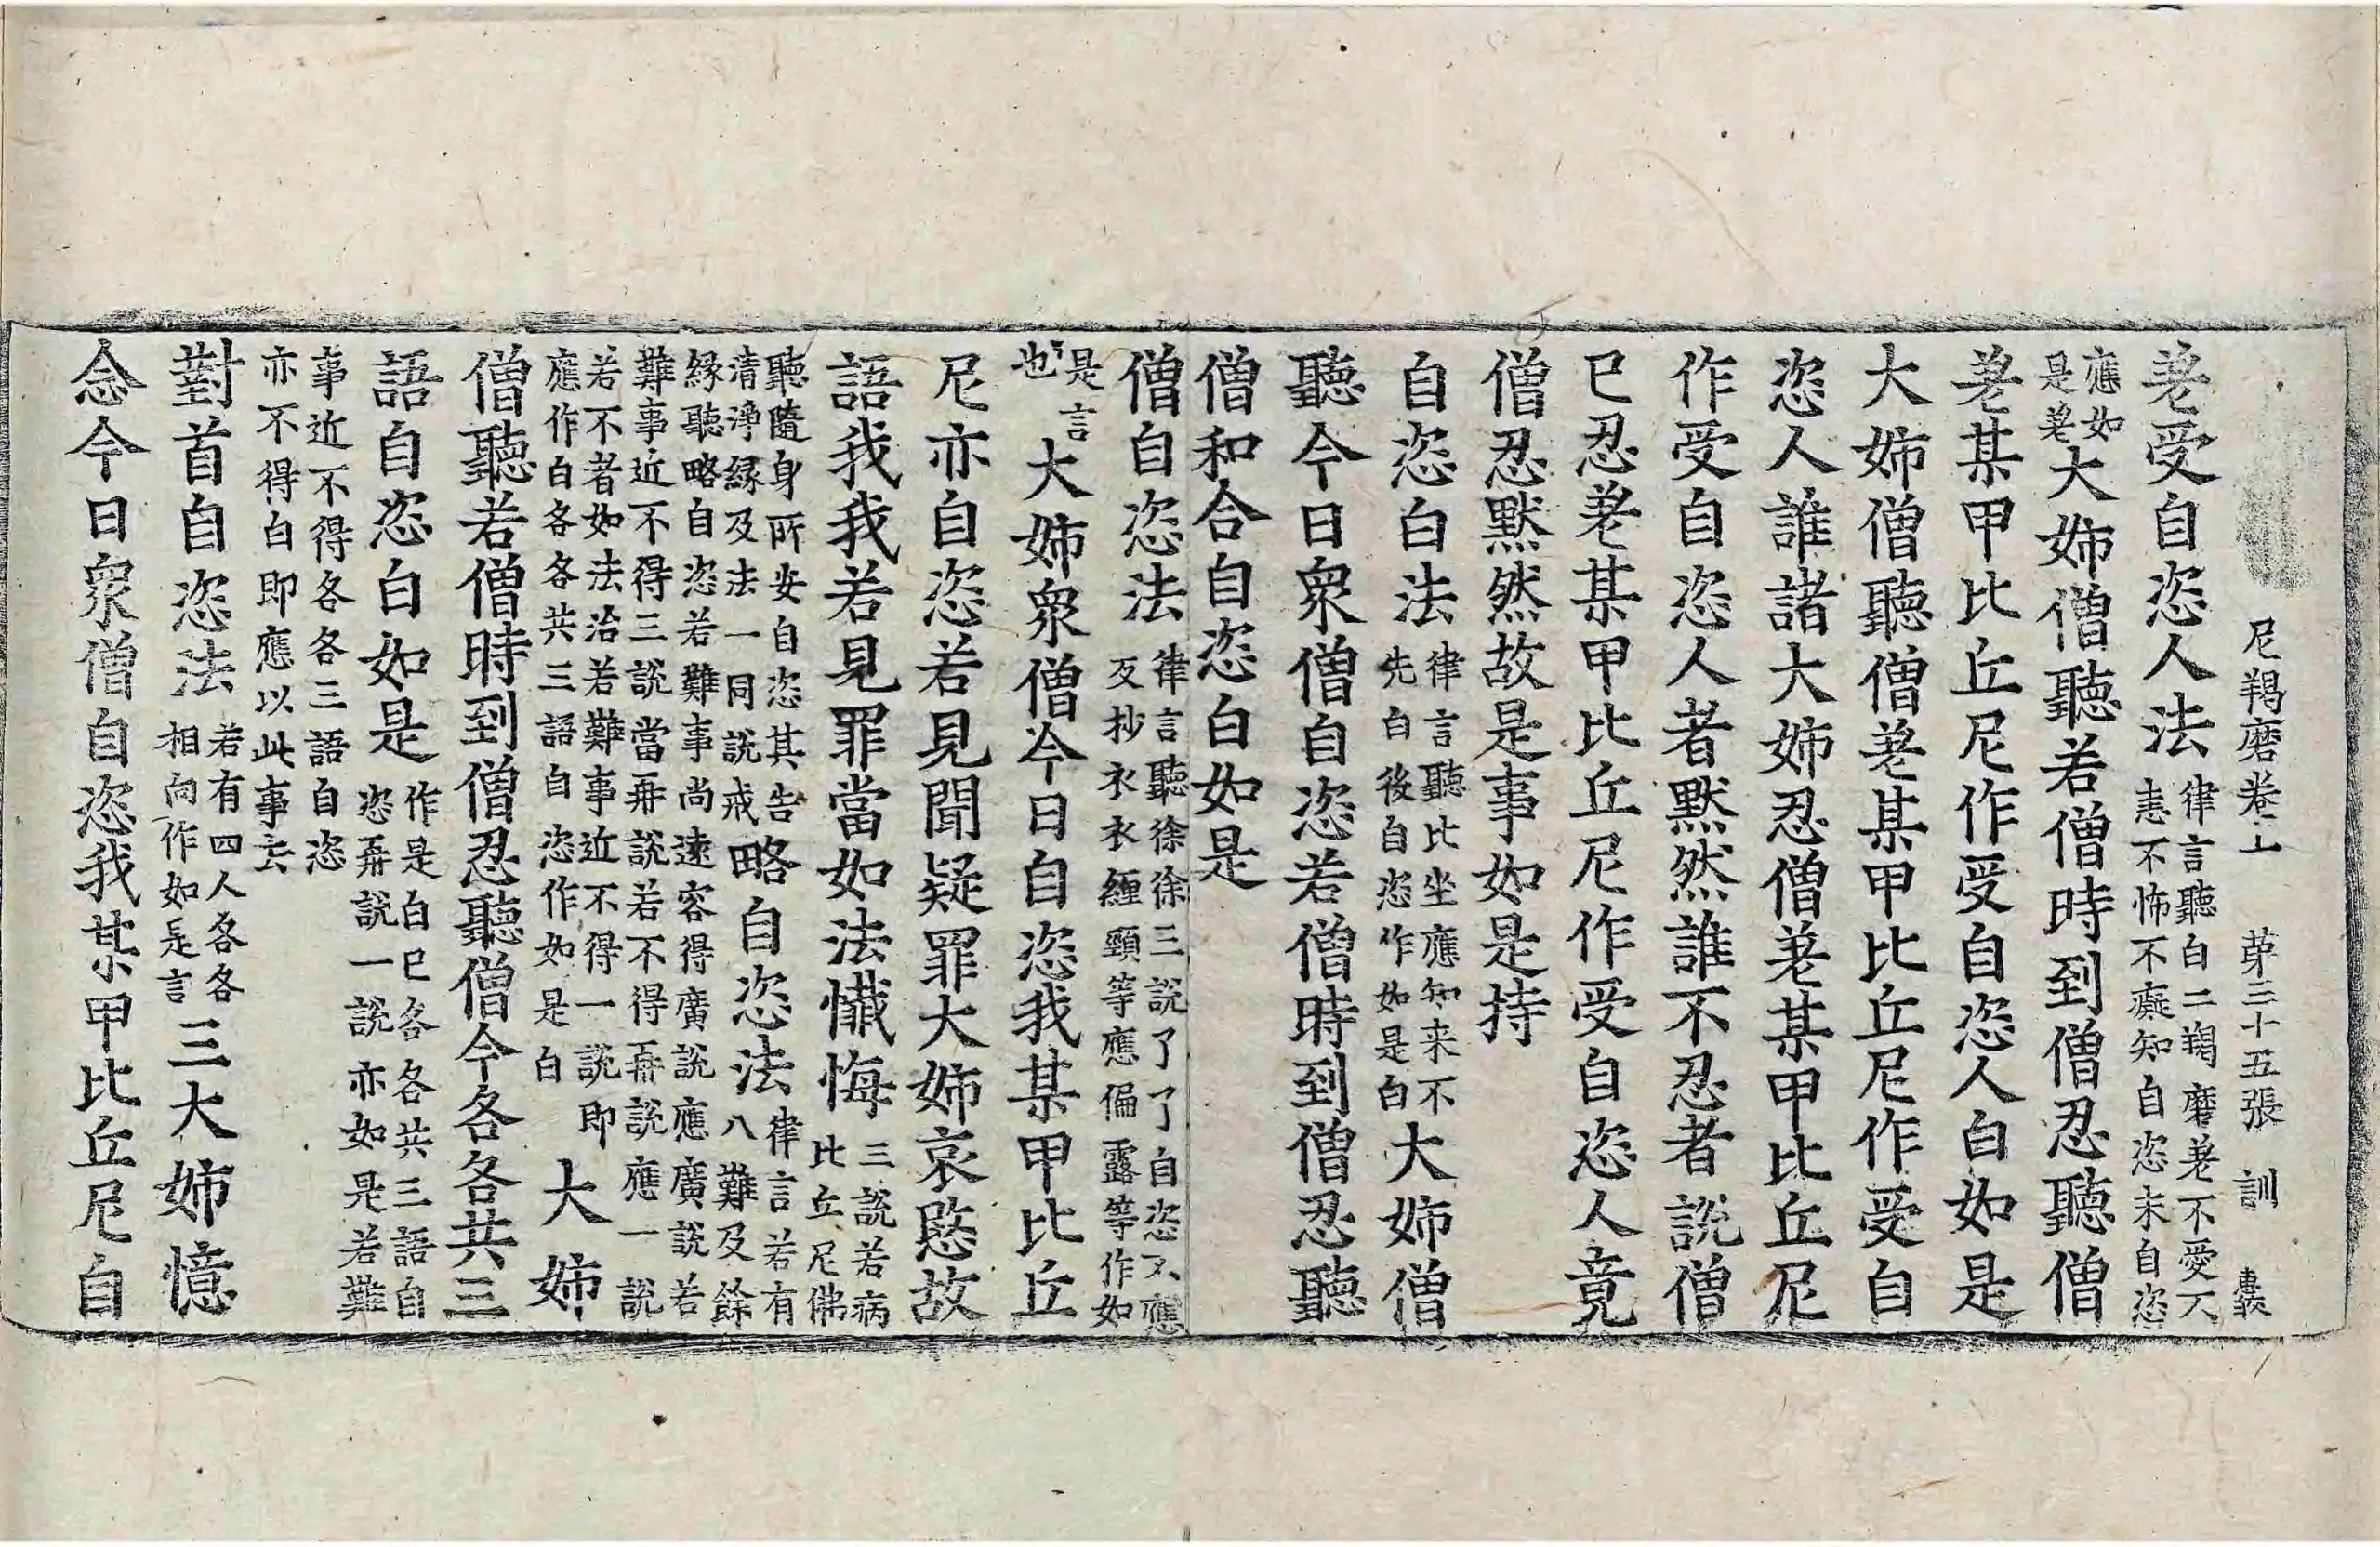 尼羯磨卷上 第三十五張 訓
差受自恣人法律言聽白二羯磨差不愛不恚不怖不癡知自恣未自恣
應如是差大姉僧聽若僧時到僧忍聽僧
差某甲比丘尼作受自恣人白如是
大姉僧聽僧差某甲比丘尼作受自
恣人誰諸大姉忍僧差某甲比丘尼
作受自恣人者默然誰不忍者說僧
已忍差某甲比丘尼作受自恣人竟
僧忍默然故是事如是持
自恣白法律言聽比坐應知来不先白後自恣作如是白大姉僧
聽今日衆僧自恣若僧時到僧忍聽
僧和合自恣白如是
僧自恣法律言聽徐徐三說了了自恣不應反抄衣衣纏頸等應偏露等作如
是言也大姉衆僧今日自恣我某甲比丘
尼亦自恣若見聞疑罪大姉哀愍故
語我我若見罪當如法懺悔三說若病比丘尼佛
聽隨身所安自恣其告清淨緣及法一同說戒略自恣法律言若有八難及餘
緣聽略自恣若難事尚遠容得廣說應廣說若
難事近不得三說當再說若不得再說應一說
若不者如法治若難事近不得一說即應作白各各共三語自恣作如是白大姉
僧聽若僧時到僧忍聽僧今各各共三
語自恣白如是作是白已各各共三語自恣再說一說亦如是若難
事近不得各各三語自恣
亦不得白即應以此事去
對首自恣法若有四人各各相向作如是言三大姉憶
念今日衆僧自恣我某甲比丘尼自